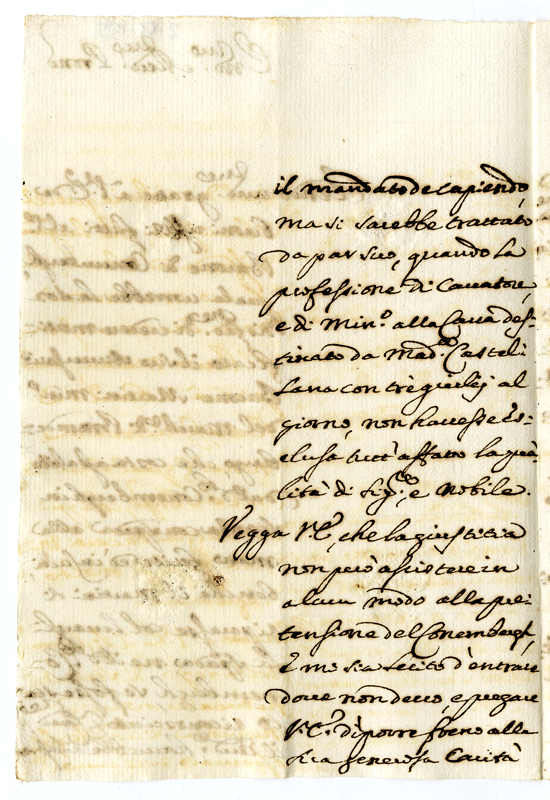 il mandato de capiendo,
ma si sarebbe trattato
da par suo, quando la
professione di Cavatore,
e di Min.º alla Cava des-
tinato da Mad.
lana con trè giulij al
giorno, non havesse Es-
clusa tutt'affatto la quà-
lità di Sig.re, e Nobile.
Vegga V.E., che la giustitia
non può assistere in
alcun modo alla pre-
tensione del
E mi sia lecito d'entrare
dove non devo, e pregare
V.E. di porre freno alla
sua generosa Carità